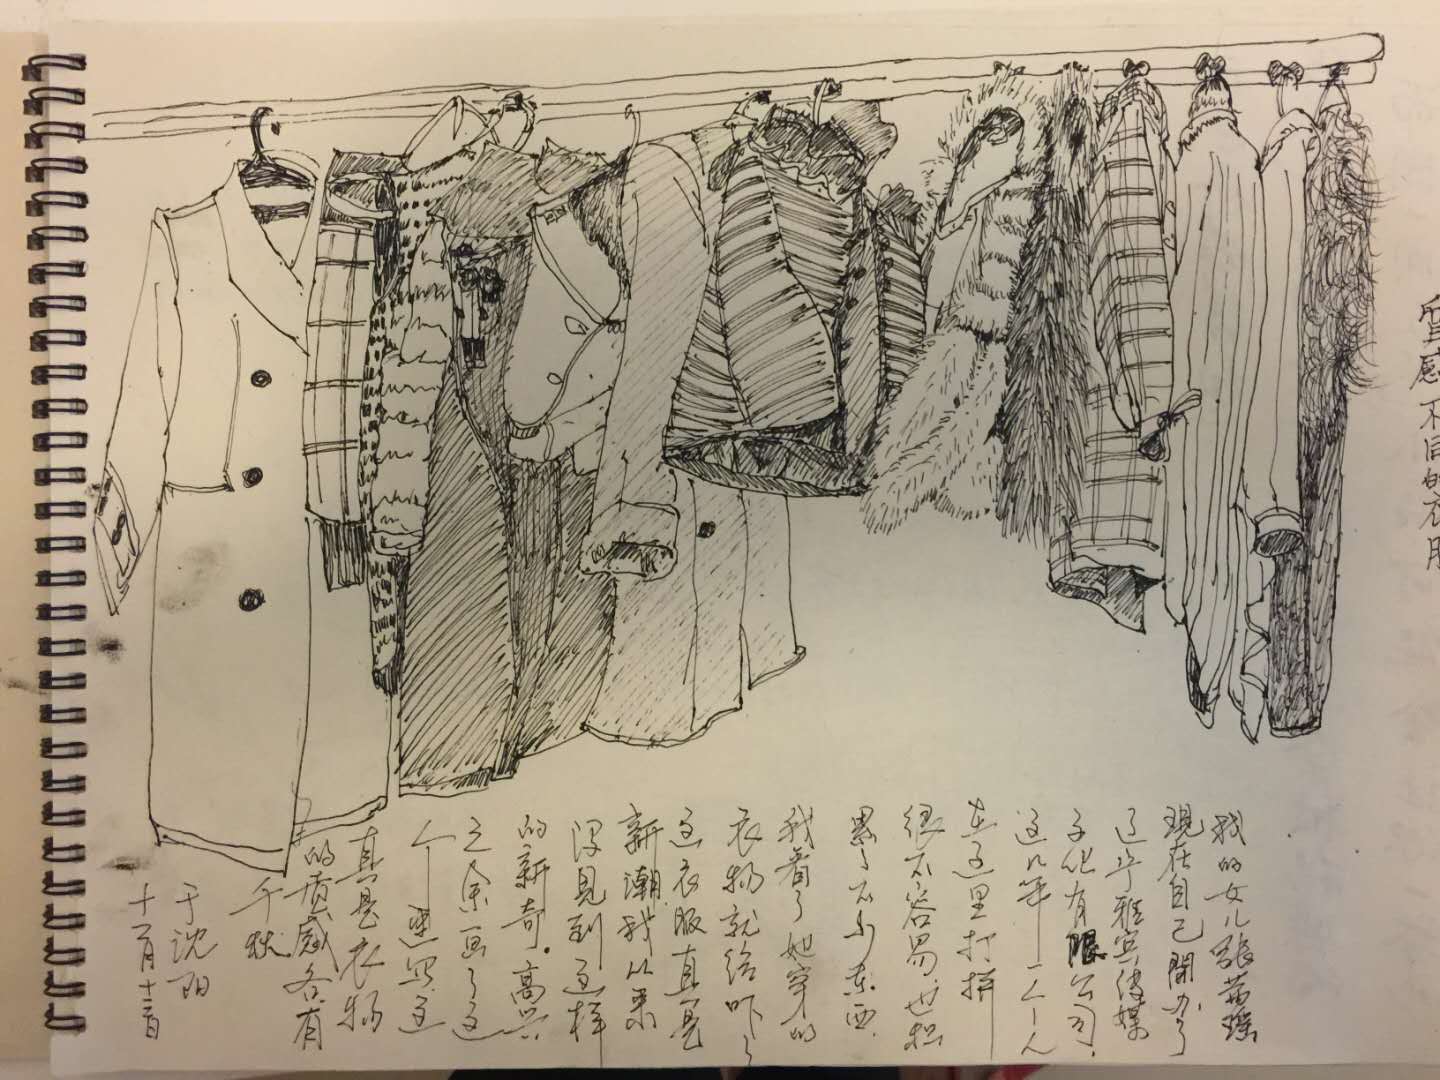 质感不同的衣服
我的女儿张茜瑶
现在自己开办了
辽宁雅宾传媒
文化有限公司.
这几年一个人
在这里打拼
很不容易.也积
累了不少东西.
我看了她穿的
衣物就给吓了
这衣服真是
新潮.我从来
没见到这样
的新奇.高兴
之余画了这
个速写.这
真是衣物
的质感各有
千秋
于沈阳
十一月十二日